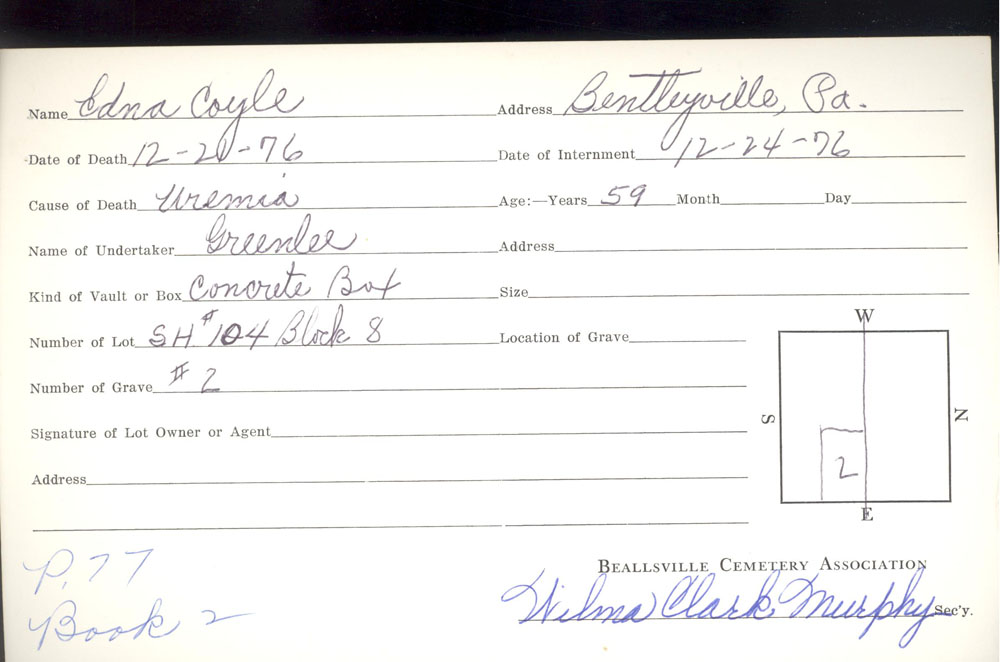 Name Edna Coyle Address Bentleyville, Pa.
Date of Death 12-20-76 Date of Internment 12-24-76
Cause of Death Uremia Age:—Years 59 Month Day
Name of Undertaker Greenlee Address
Kind of Vault or Box Concrete Box Size
Number of Lot SH #104 Block 8 Location of Grave
Number of Grave # 2
Signature of Lot Owner or Agent
Address
W
S N
2
E
P. 77
Book 2
BEALLSVILLE CEMETERY ASSOCIATION
Wilma Clark Murphy Sec'y.